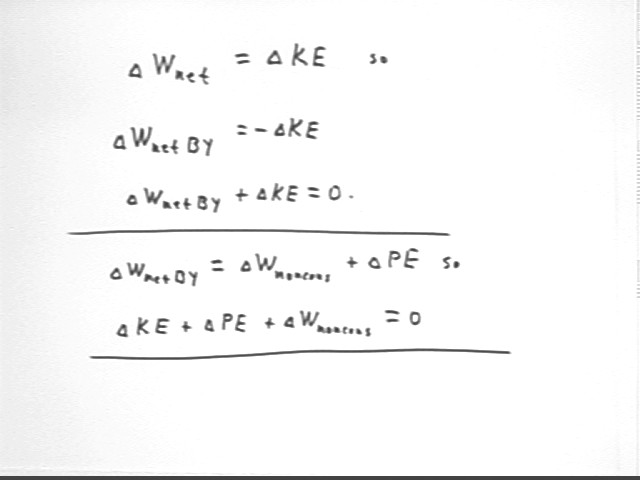 ΔW_net = ΔKE so
ΔW_net BY = -ΔKE
ΔW_net BY + ΔKE = 0.
ΔW_net BY = ΔW_noncons + ΔPE so
ΔKE + ΔPE + ΔW_noncons = 0